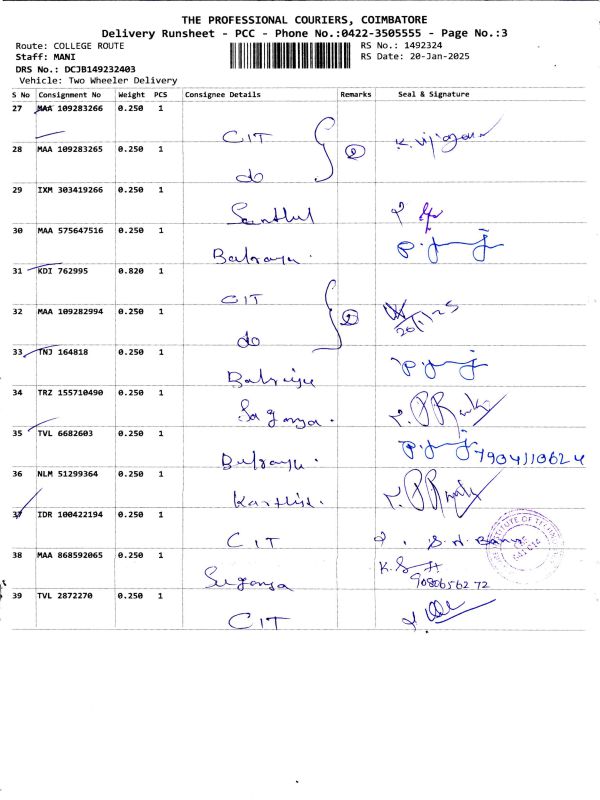 THE PROFESSIONAL COURIERS, COIMBATORE
Delivery Runsheet - PCC - Phone No.:0422-3505555 - Page No.:3
Route: COLLEGE ROUTE RS No.: 1492324
Staff: MANI RS Date: 20-Jan-2025
DRS No.: DCJB149232403
Vehicle: Two Wheeler Delivery
S No Consignment No Weight PCS Consignee Details Remarks Seal & Signature
27 MAA 109283266 0.250 1
CIT
28 MAA 109283265 0.250 1 2
do
29 IXM 303419266 0.250 1
Senthul
30 MAA 575647516 0.250 1
31 KDI 762995 0.820 1
CIT
32 MAA 109282994 0.250 1 2 20/1/25
do
33 TNJ 164818 0.250 1
34 TRZ 155710490 0.250 1
35 TVL 6682603 0.250 1
7904110624
36 NLM 51299364 0.250 1
Karthik.
37 IDR 100422194 0.250 1
CIT
38 MAA 868592065 0.250 1
9080656272
39 TVL 2872270 0.250 1
CIT